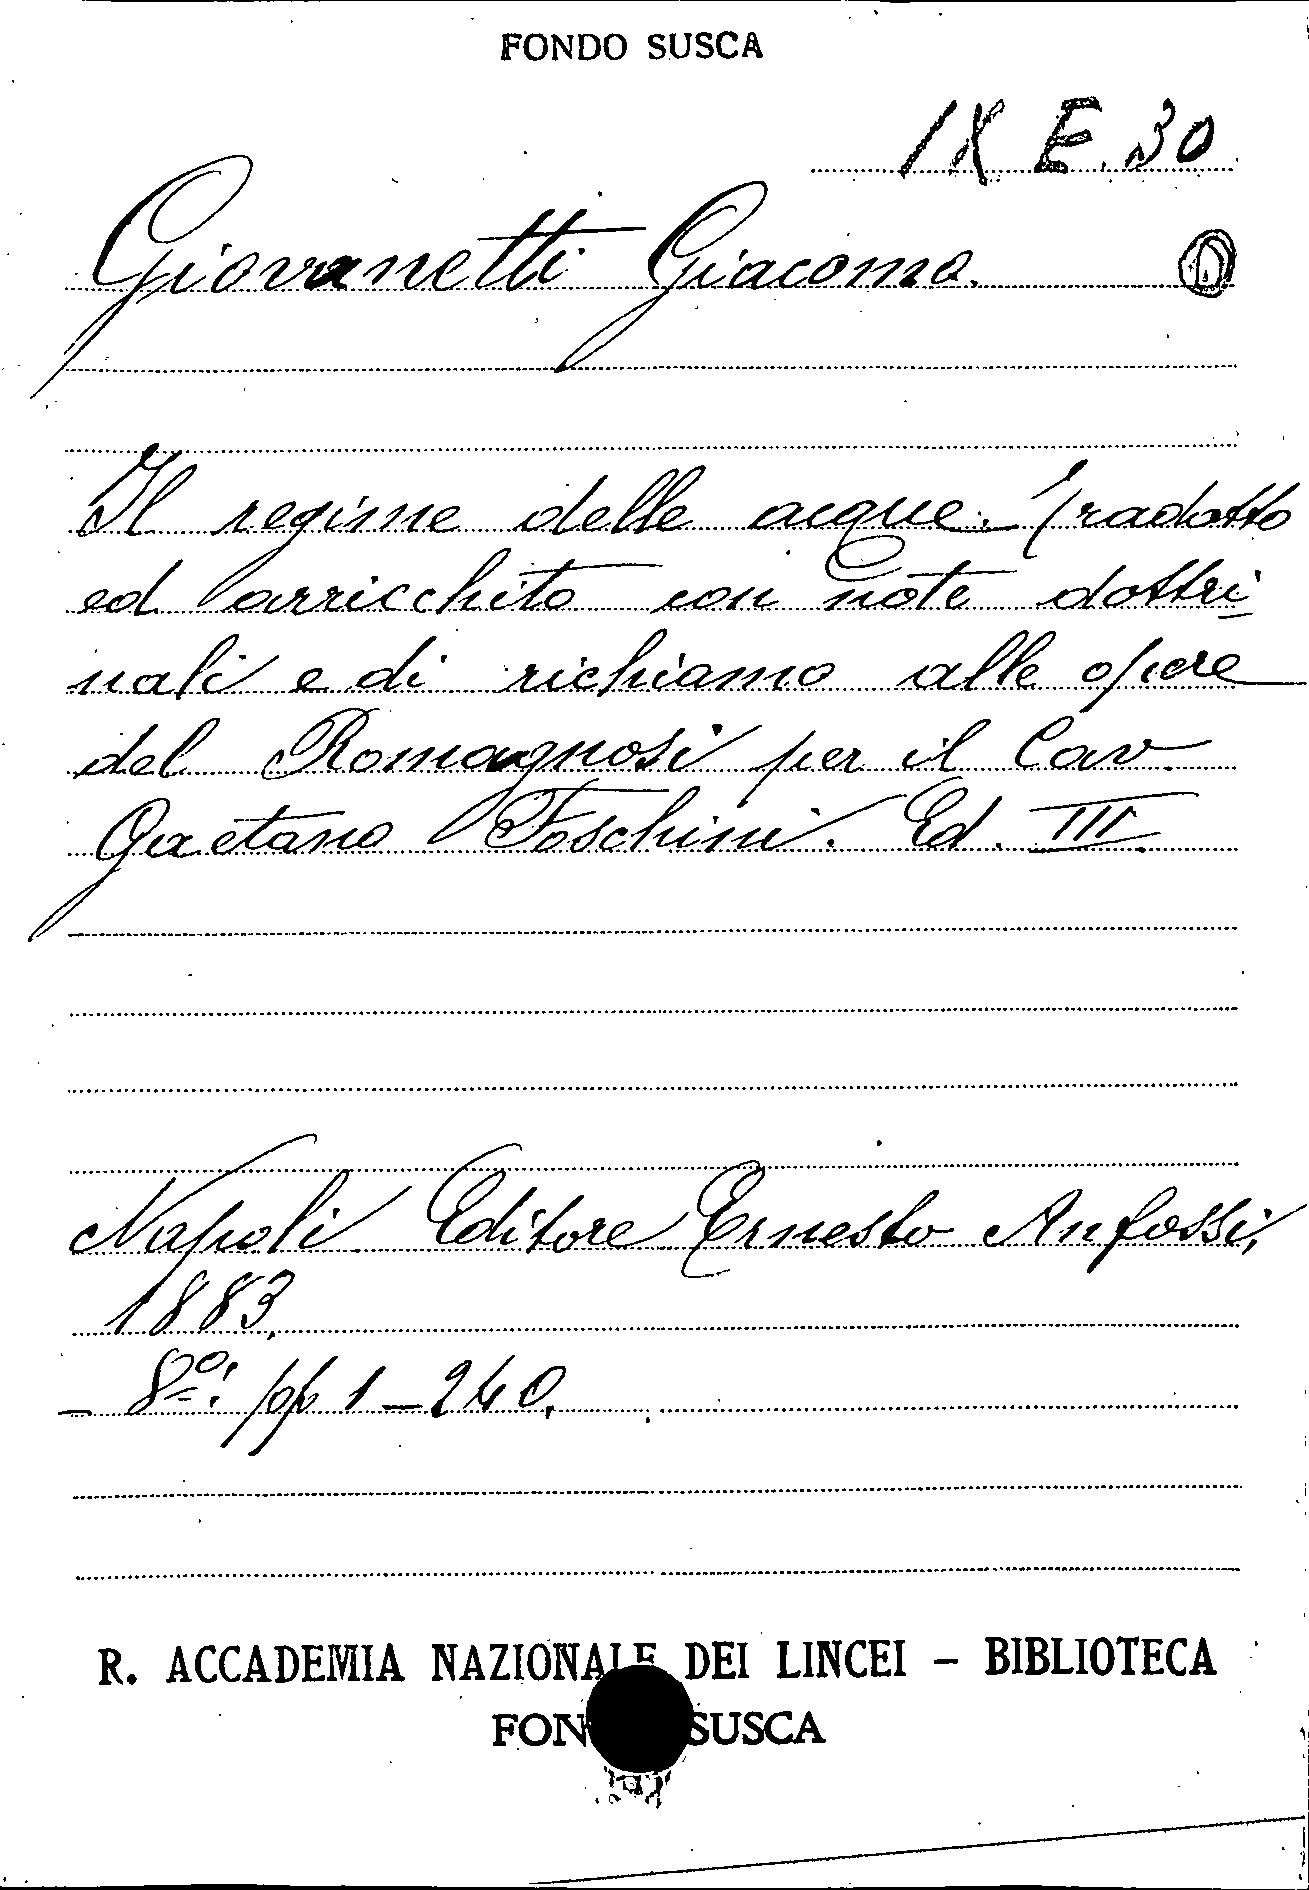 FONDO SUSCA
IX E. 30
Giovanetti Giacomo.
Il regime delle acque. Tradotto
ed arricchito con note dottri
nali e di richiamo alle opere
del Romagnosi per il Cav.
Gaetano Foschini. Ed. III.
Napoli Editore Ernesto Anfossi,
1883.
- 8º: pp 1-240.
R. ACCADEMIA NAZIONALE DEI LINCEI - BIBLIOTECA
FON SUSCA